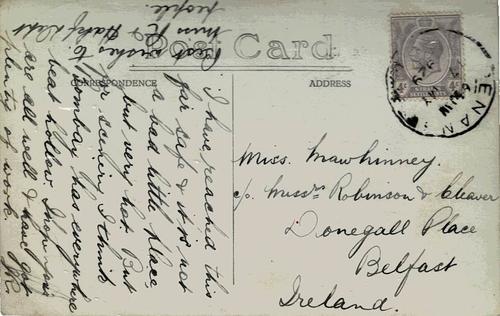 Post Card
CORRESPONDENCE
ADDRESS
I have reached this
far safe & it is not
a bad little place
but very hot. But
for scenery I think
Bombay has everywhere
beat hollow. I hope you
are all well & have got
plenty of work.
JR
Best wishes to
Miss K &
people.
4c
STRAITS
SETTLEMENTS
4c
PENANG
Miss. Mawhinney.
c/o Messrs Robinson & Cleaver
Donegall Place
Belfast
Ireland.